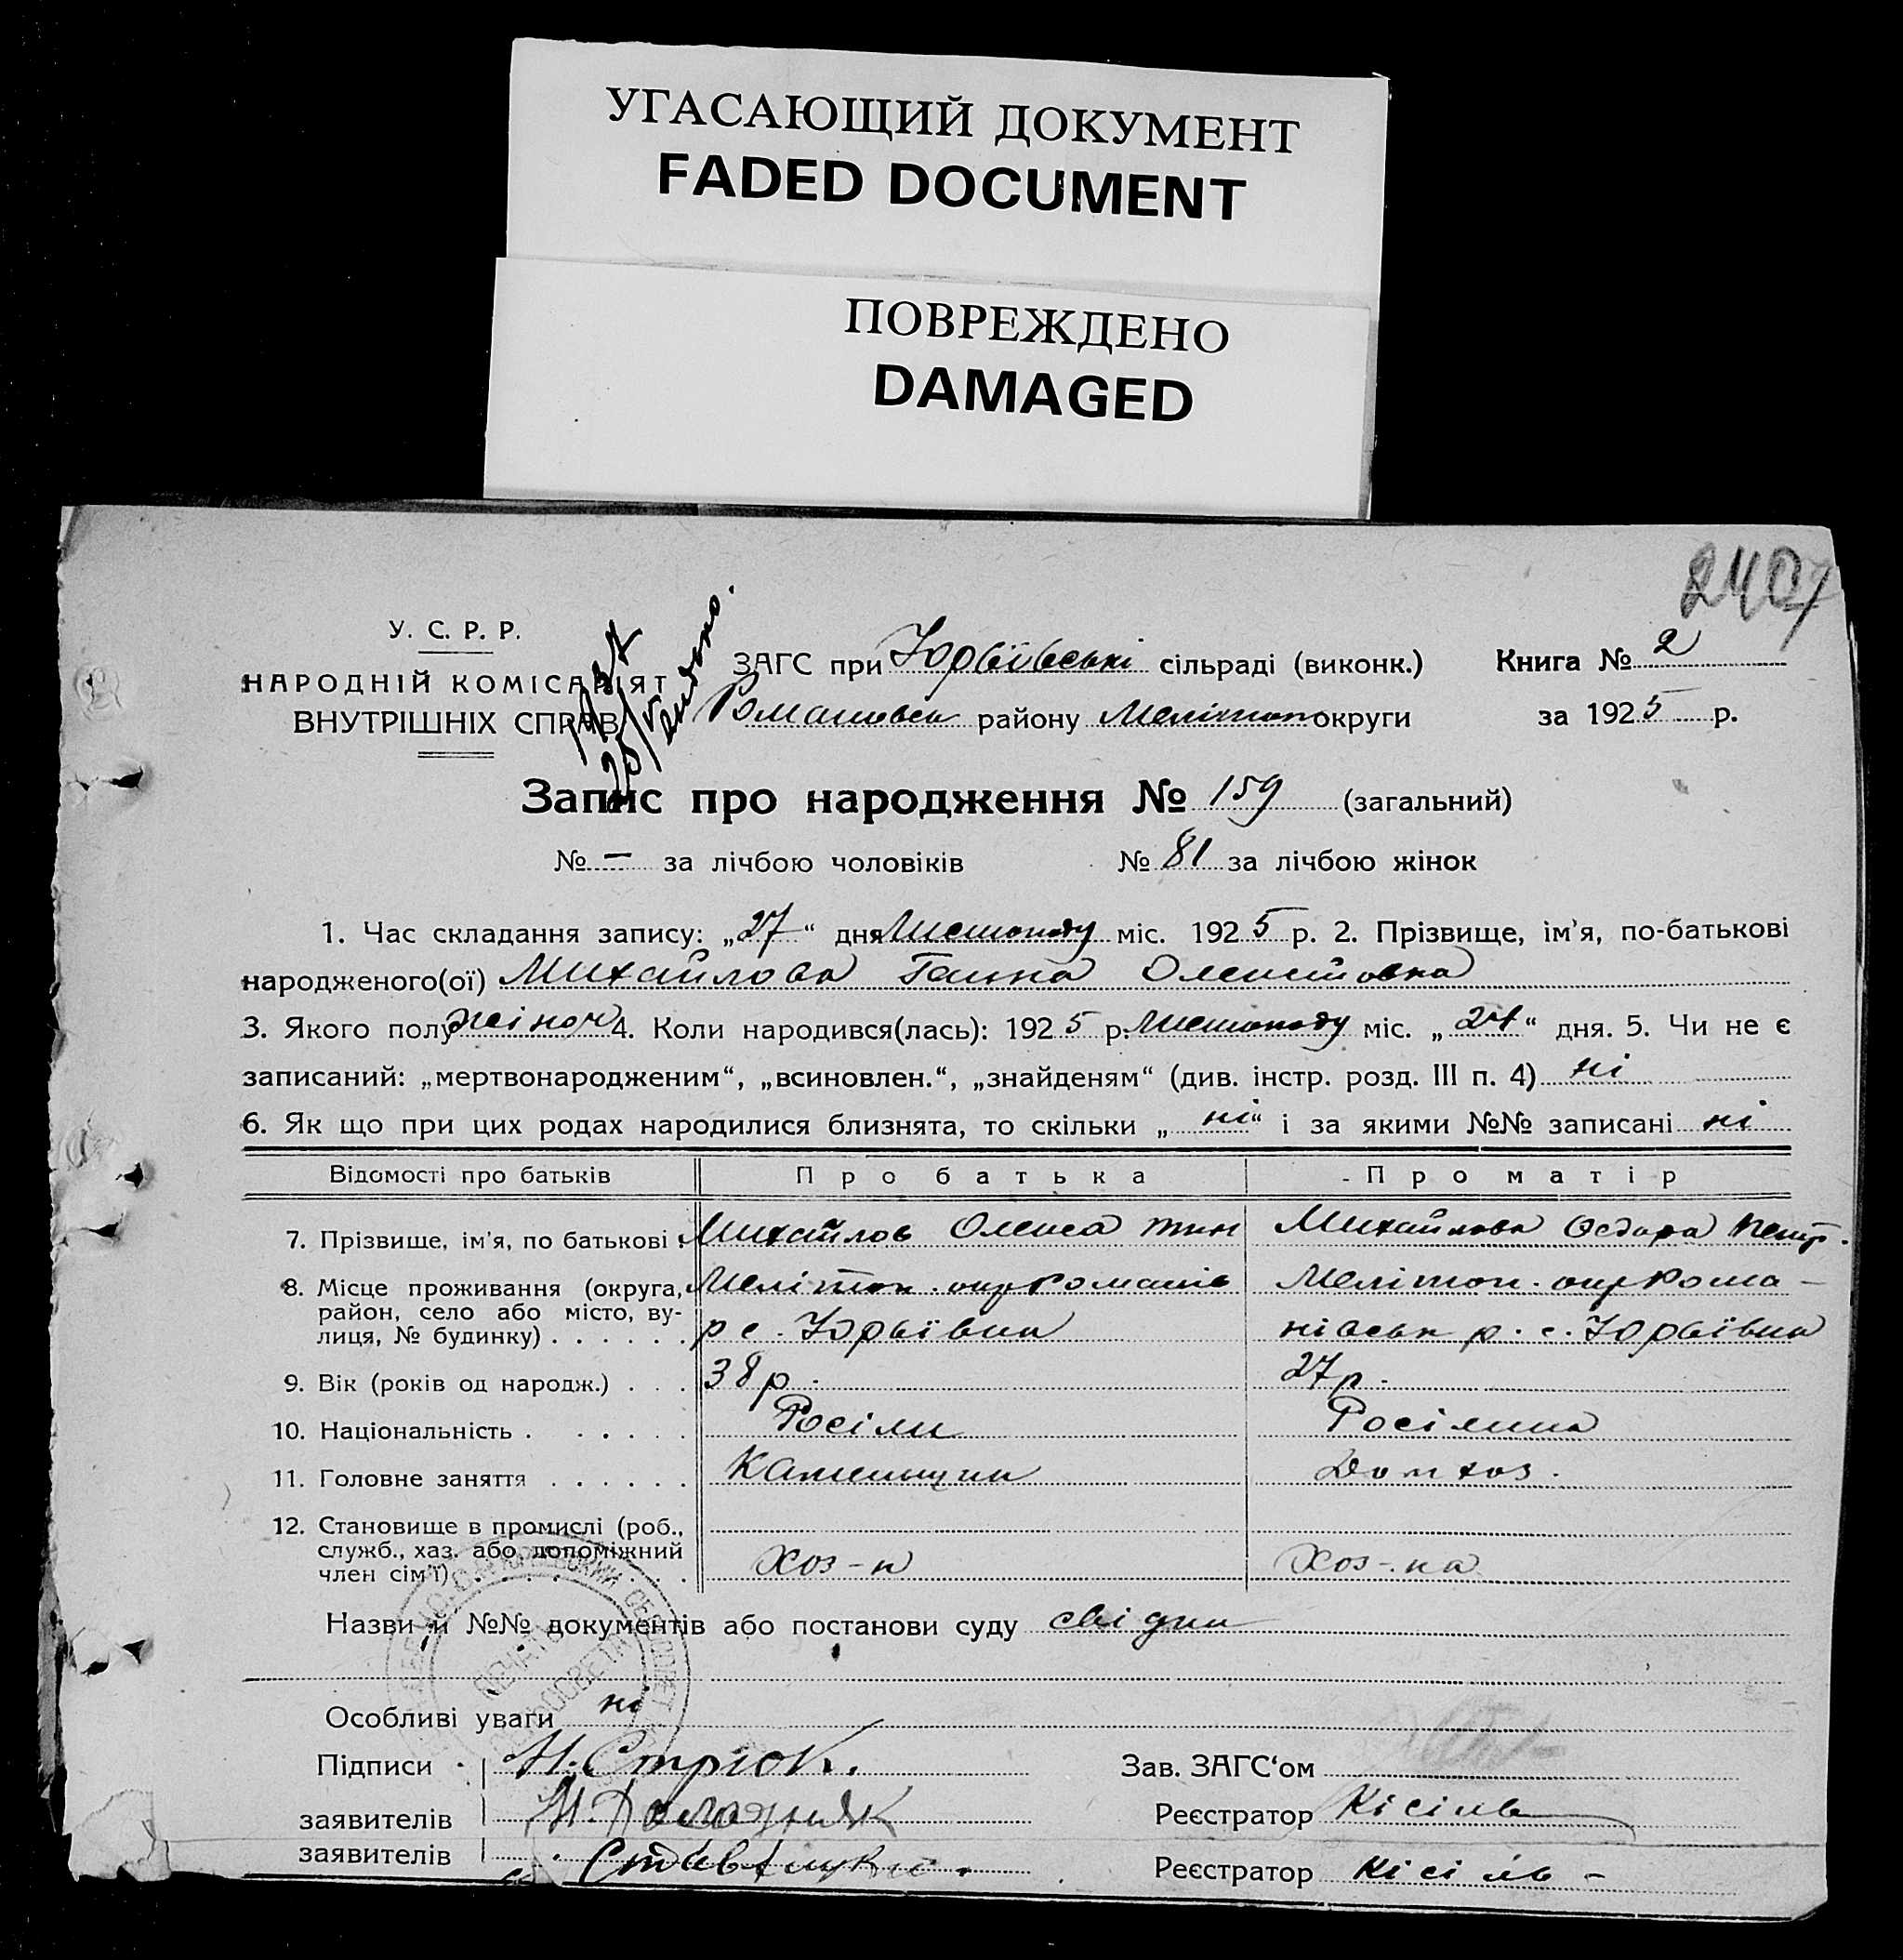 УГАСАЮЩИЙ ДОКУМЕНТ
FADED DOCUMENT
ПОВРЕЖДЕНО
DAMAGED
2407
У. С. Р. Р.
НАРОДНІЙ КОМІСАРІЯТ
ВНУТРІШНІХ СПРАВ
ЗАГС при Юрьївські сільраді (виконк.) Книга № 2
району Мелітоп округи за 1925 р.
Запис про народження № 159 (загальний)
№ — за лічбою чоловіків № 81 за лічбою жінок
1. Час складання запису: „27“ дня Листопаду міс. 1925 р. 2. Прізвище, ім'я, по-батькові
народженого(ої) Михайлова Ганна
3. Якого полу жіноч 4. Коли народився(лась): 1925 р. Листопаду міс. „24“ дня. 5. Чи не є
записаний: „мертвонародженим“, „всиновлен.“, „знайденям“ (див. інстр. розд. III п. 4) ні
6. Як що при цих родах народилися близнята, то скільки „ні“ і за якими №№ записані ні
Відомості про батьків Про батька Про матір
7. Прізвище, ім'я, по батькові Михайлов Олекса Михайлова Петр.
8. Місце проживання (округа, Мелітоп. окр Романів Мелітоп. окр Рома-
район, село або місто, ву-
лиця, № будинку) р с. Юрьївка нівськ р. с. Юрьївка
9. Вік (років од народж.) 38 р. 27 р.
10. Національність Росіян Росіянка
11. Головне заняття Каменьщик Дом хоз.
12. Становище в промислі (роб.,
служб., хаз. або допоміжний
член сім'ї) Хоз-н Хоз-ка
Назви й №№ документів або постанови суду свідки
Особливі уваги ні
Підписи Н. Стрюк. Зав. ЗАГС'ом
заявителів Реєстратор Кісіль
заявителів Реєстратор Кісіль -